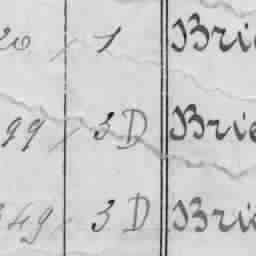 20 1 Brie
99 3 D Brie
349 3 D Brie